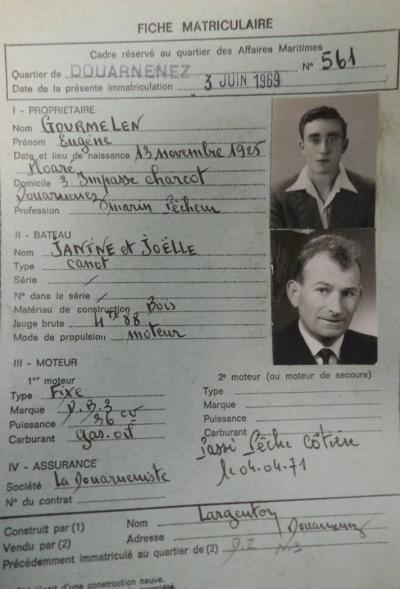 FICHE MATRICULAIRE
Cadre réservé au quartier des Affaires Maritimes
Quartier de DOUARNENEZ N° 561
Date de la présente immatriculation 3 JUIN 1969
I - PROPRIETAIRE
Nom GOURMELEN
Prénom Eugène
Date et lieu de naissance 13 novembre 1925
Ploaré
Domicile 3 Impasse charcot
Douarnenez
Profession marin Pêcheur
II - BATEAU
Nom JANINE et JOËLLE
Type canot
Série /
N° dans la série /
Matériau de construction Bois
Jauge brute 4 Tx 88
Mode de propulsion moteur
III - MOTEUR
1er moteur
Type Fixe
Marque D.B.3
Puissance 36 CV
Carburant Gas-oil
2e moteur (ou moteur de secours)
Type
Marque
Puissance
Carburant
Passé Pêche Côtière
le 04.04.71
IV - ASSURANCE
Société La Douarneniste
N° du contrat
Construit par (1) Nom Largenton
Vendu par (2) Adresse Douarnenez
Précédemment immatriculé au quartier de (2) D.Z N°
d'une construction neuve.